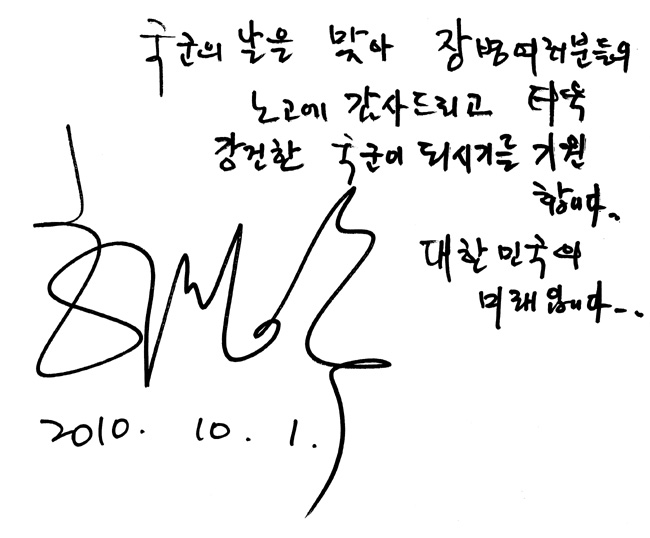 국군의 날을 맞아 장병여러분들의
노고에 감사드리고 더욱
강건한 국군이 되시기를 기원
합니다..
대한민국의
미래입니다...
2010. 10. 1.